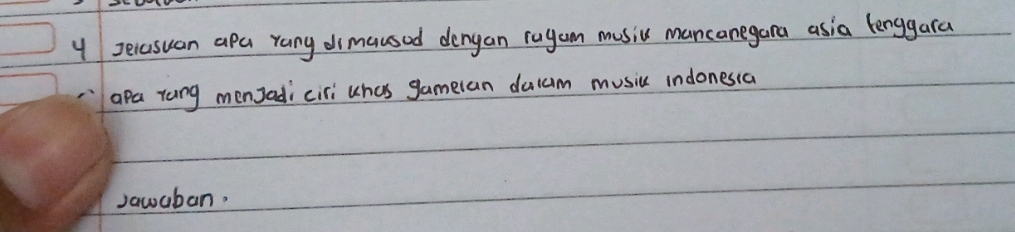 4 Jelaskan apa yang dimaksud dengan ragam musik mancanegara asia tenggara
apa yang menjadi ciri khas gamelan dalam musik indonesia
Jawaban.